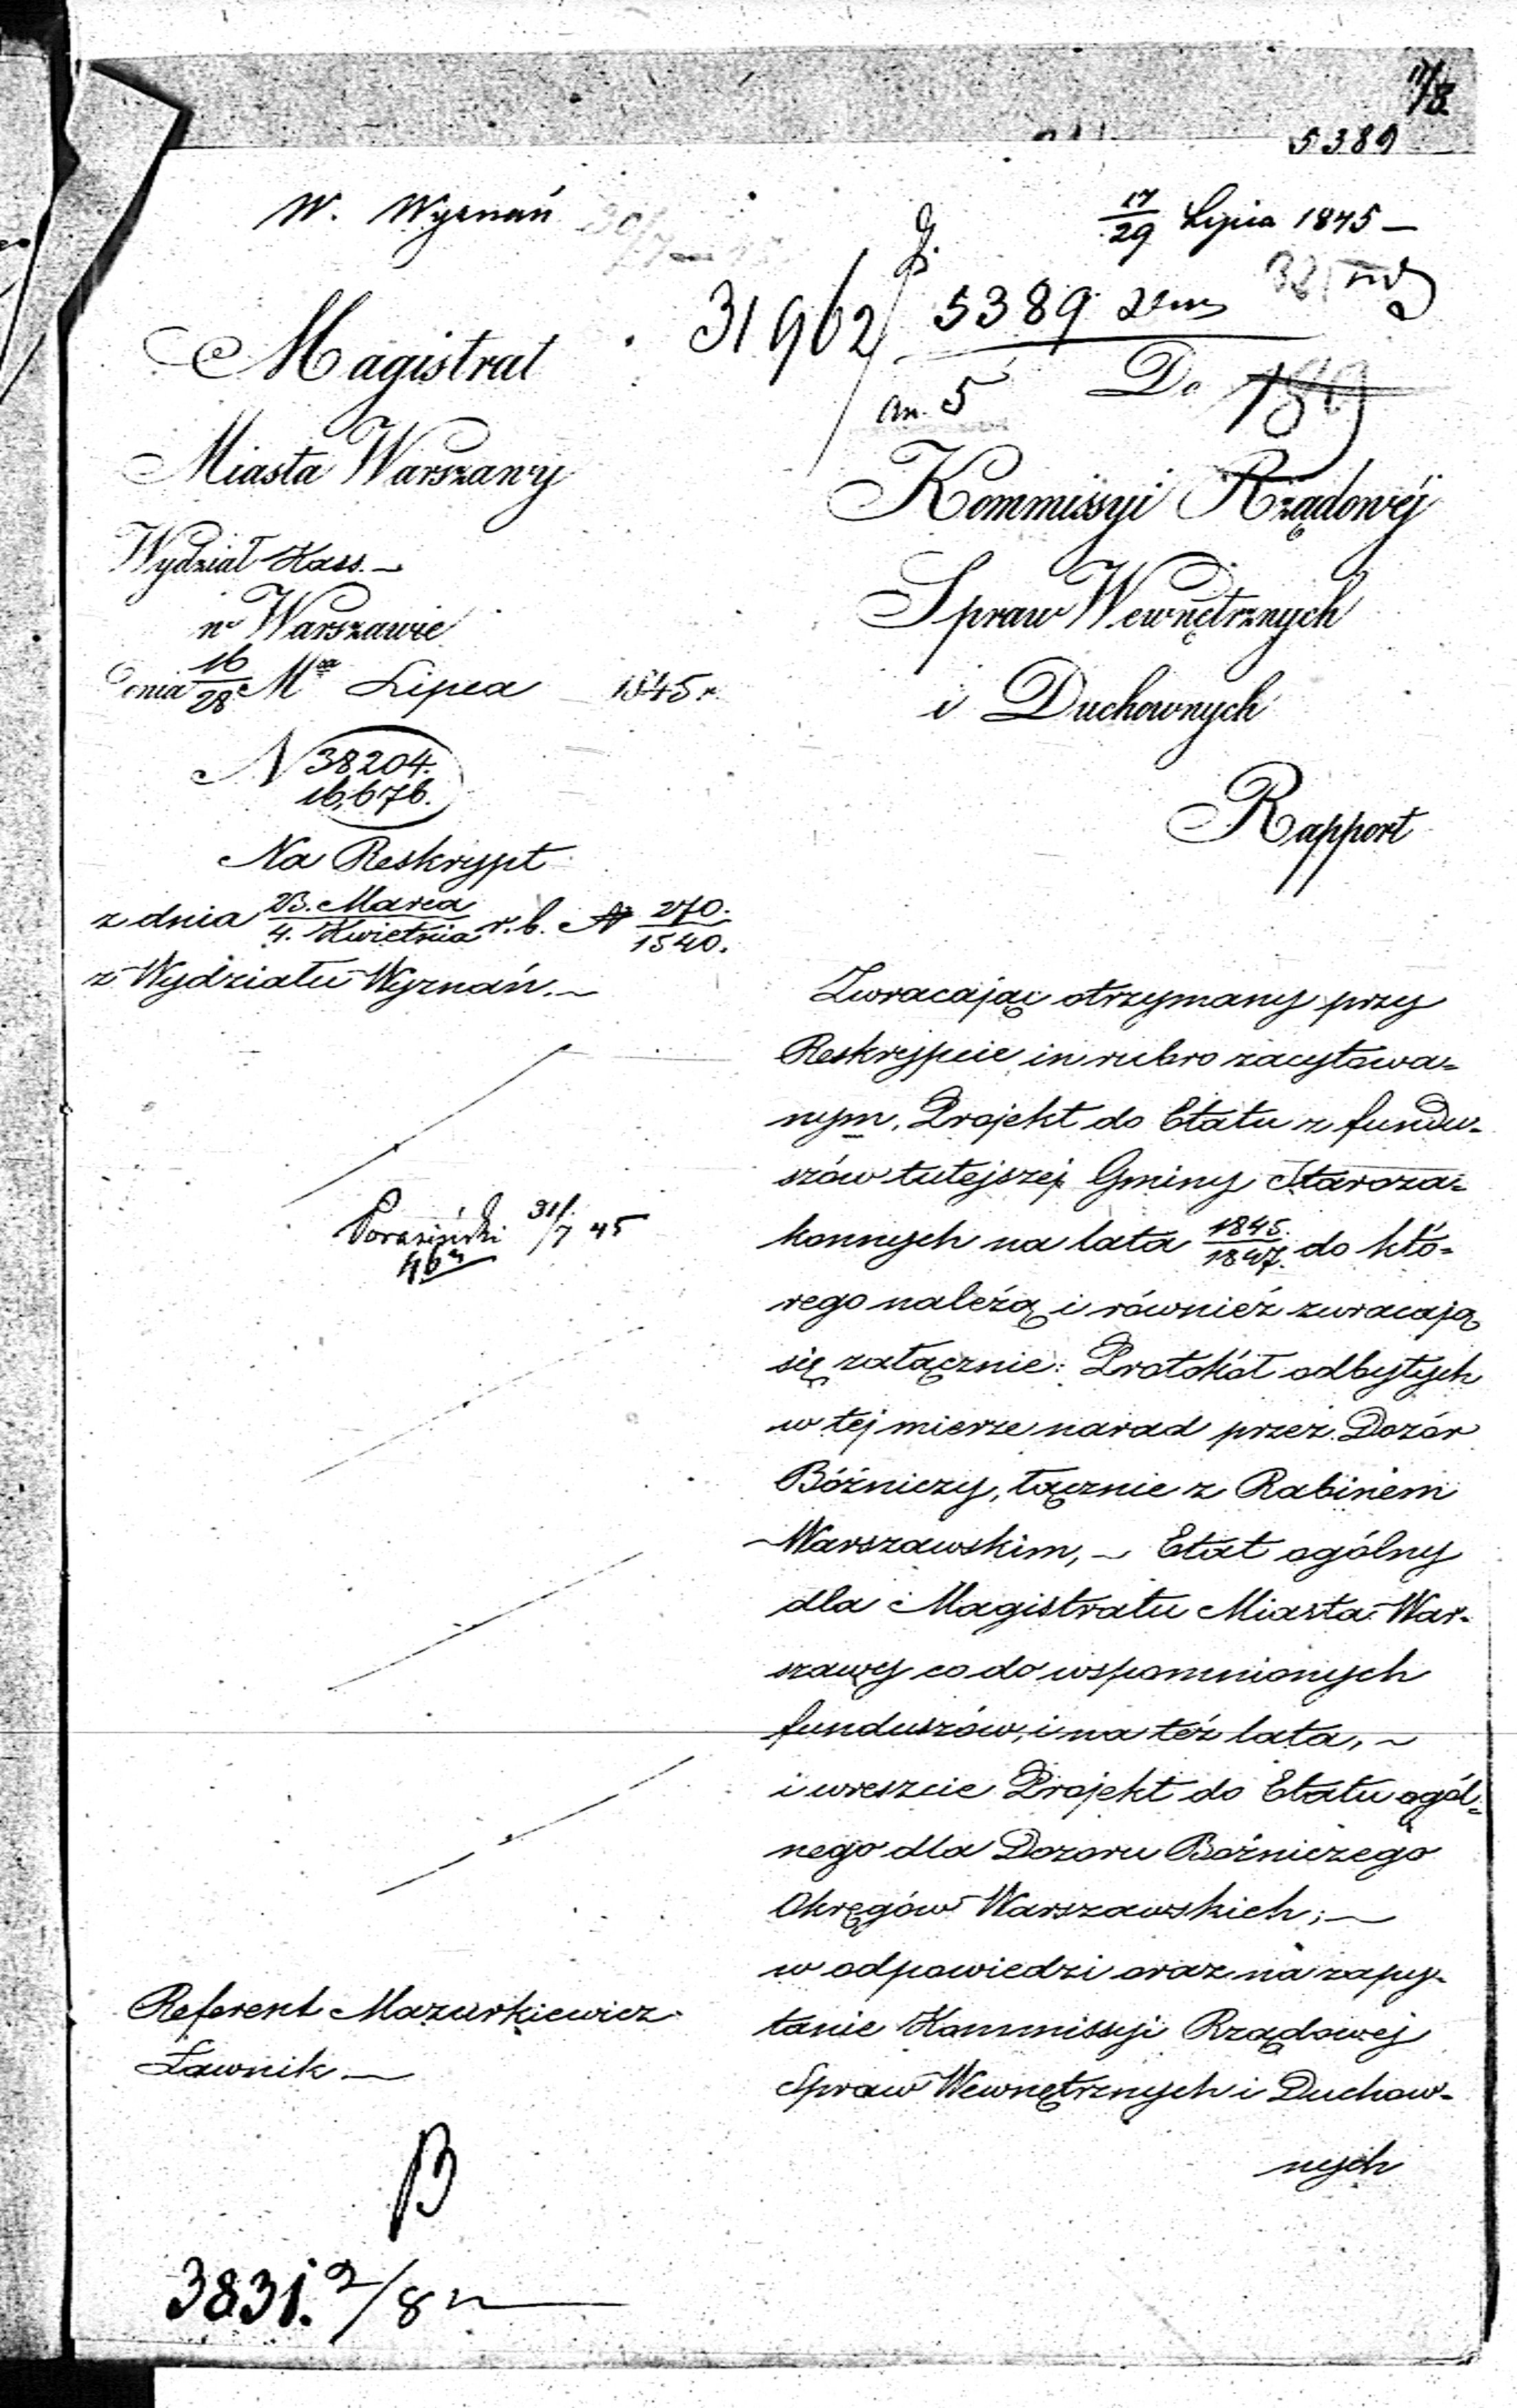 11/8
5389
W. Wyznań
17/29 Lipca 1845 —
31962
5389
an. 5
Do
189
Magistrat
Miasta Warszawy
Wydział Kass. —
w Warszawie
dnia 16/28 Mca Lipca 1845 r.
N 38204.
16,676.
Na Reskrypt
z dnia 23. Marca / 4. Kwietnia r. b. N 270. / 1540.
z Wydziału Wyznań. —
Kommissyi Rządowéj
Spraw Wewnętrznych
i Duchownych
Rapport
Zwracając otrzymany przy
Reskrypcie in rubro zacytowa=
nym, Projekt do Etatu z fundu=
szów tutejszej Gminy Staroza=
konnych na lata 1845. / 1847. do któ=
rego należą i również zwracają
się załącznie: Protokół odbytych
w tej mierze narad przez Dozór
Bóżniczy, łącznie z Rabinem
Warszawskim, — Etat ogólny
dla Magistratu Miasta War=
szawy co do wspomnionych
funduszów, i na też lata, —
i wreszcie Projekt do Etatu ogól=
nego dla Dozoru Bożniczego
Okręgów Warszawskich; —
w odpowiedzi oraz na zapy=
tanie Kommissyi Rządowej
Spraw Wewnętrznych i Duchow=
nych
31/7 45
Referent Mazurkiewicz
Ławnik —
B
3831. 2/8